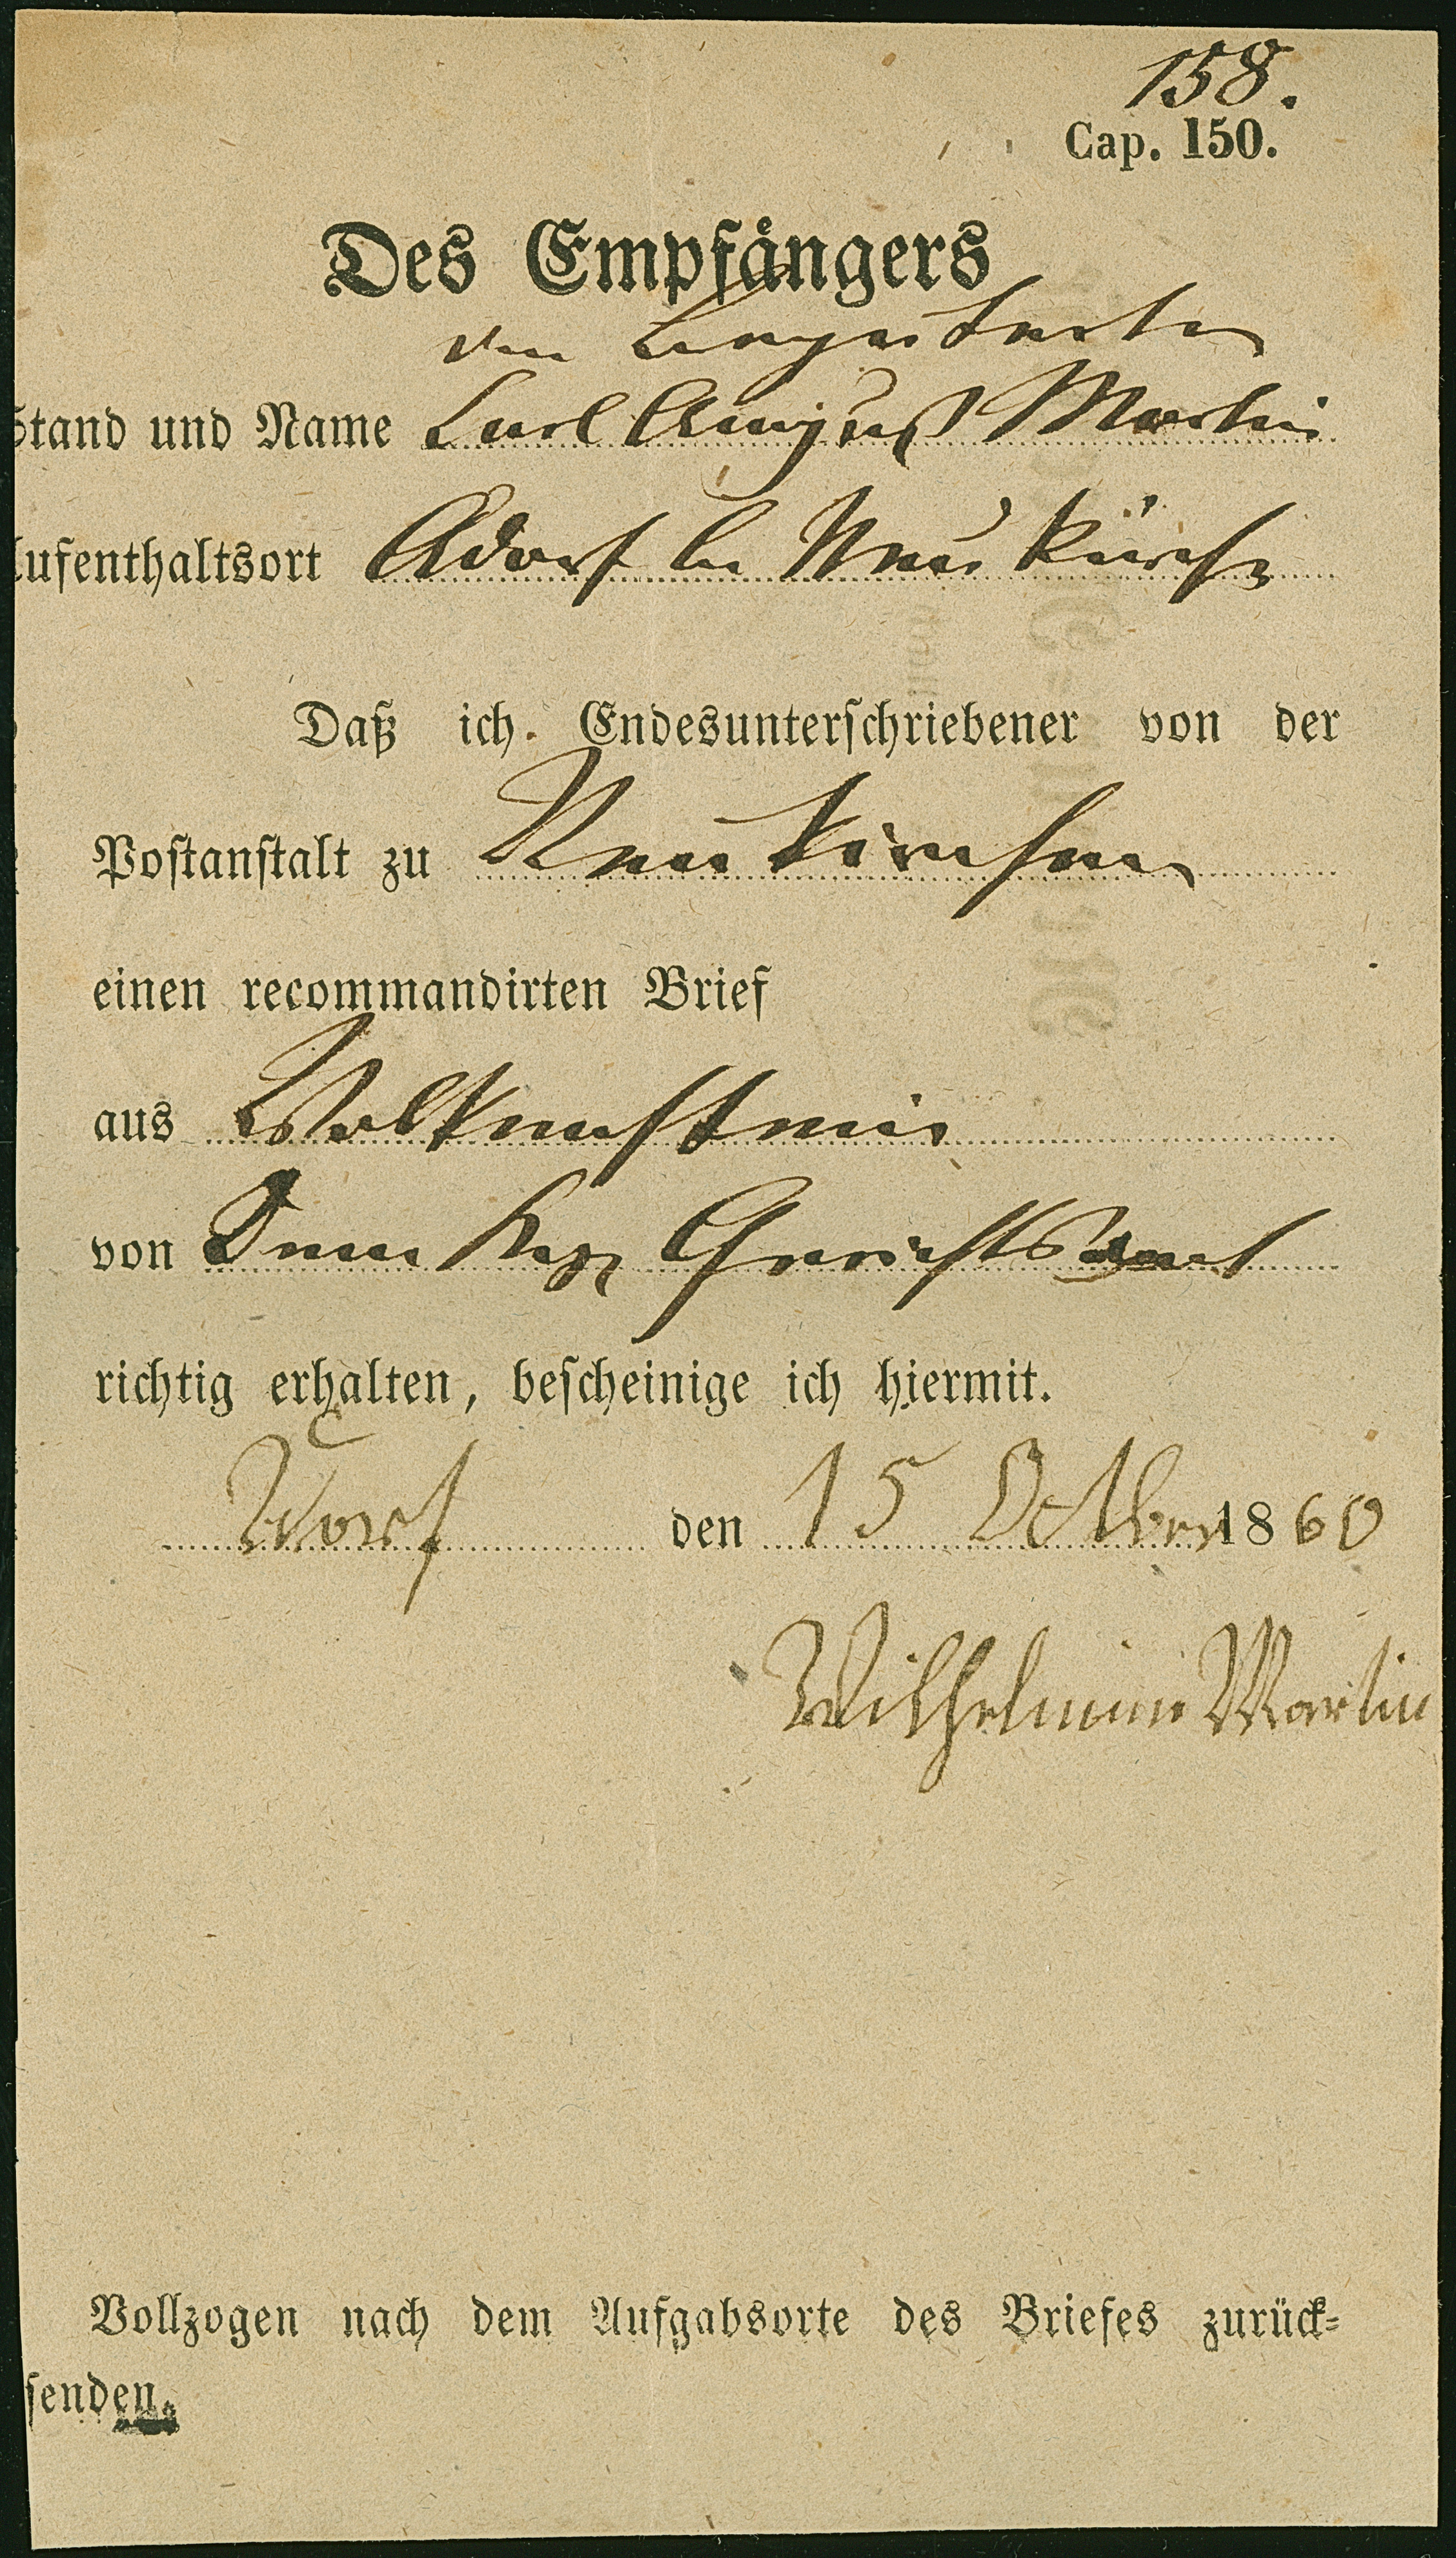 158.
Cap. 150.
Des Empfängers
den
Stand und Name Carl August Martin
Aufenthaltsort Adorf bei Neukirchen
Daß ich Endesunterschriebener von der
Postanstalt zu Neukirchen
einen recommandirten Brief
aus Wolkenstein
von Dem Kgl Gerichtsamt
richtig erhalten, bescheinige ich hiermit.
Adorf den 15 October 1860
Wilhelmine Martin
Vollzogen nach dem Aufgabsorte des Briefes zurück-
senden.